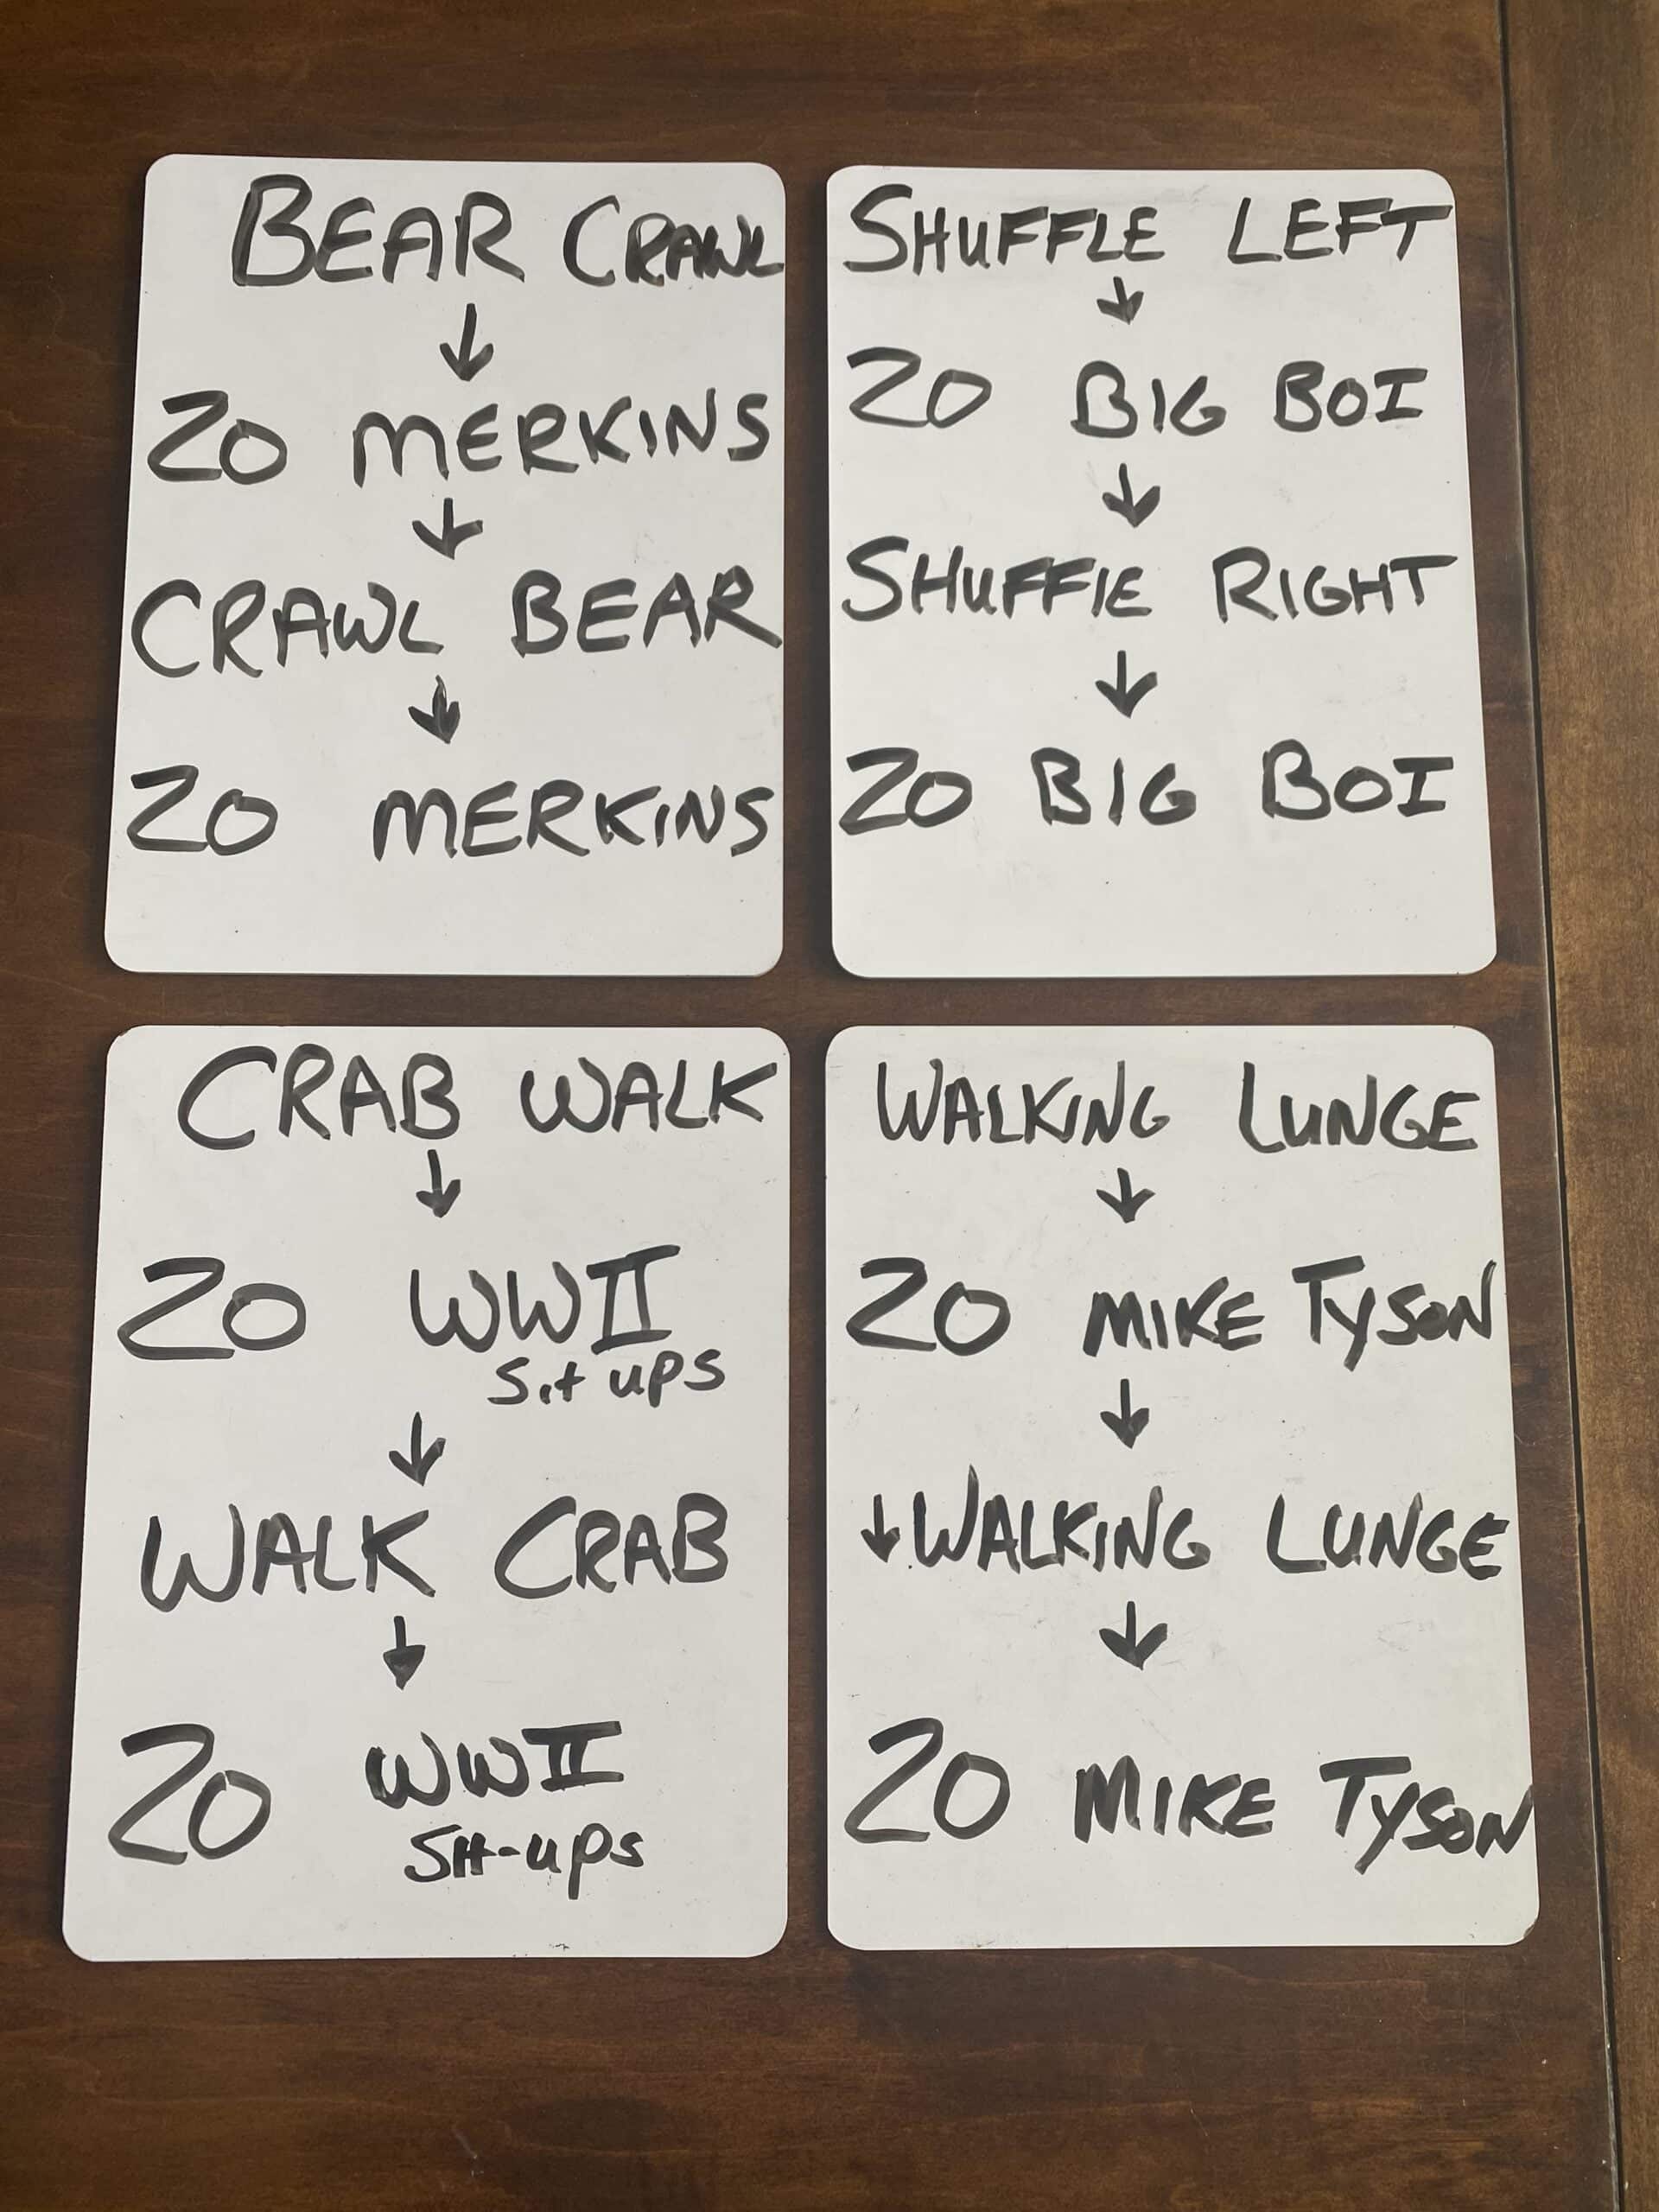 BEAR CRAWL
↓
20 MERKINS
↓
CRAWL BEAR
↓
20 MERKINS
SHUFFLE LEFT
↓
20 BIG BOI
↓
SHUFFLE RIGHT
↓
20 BIG BOI
CRAB WALK
↓
20 WWII
Sit ups
↓
WALK CRAB
↓
20 WWII
Sit-ups
WALKING LUNGE
↓
20 MIKE TYSON
↓
↓WALKING LUNGE
↓
20 MIKE TYSON